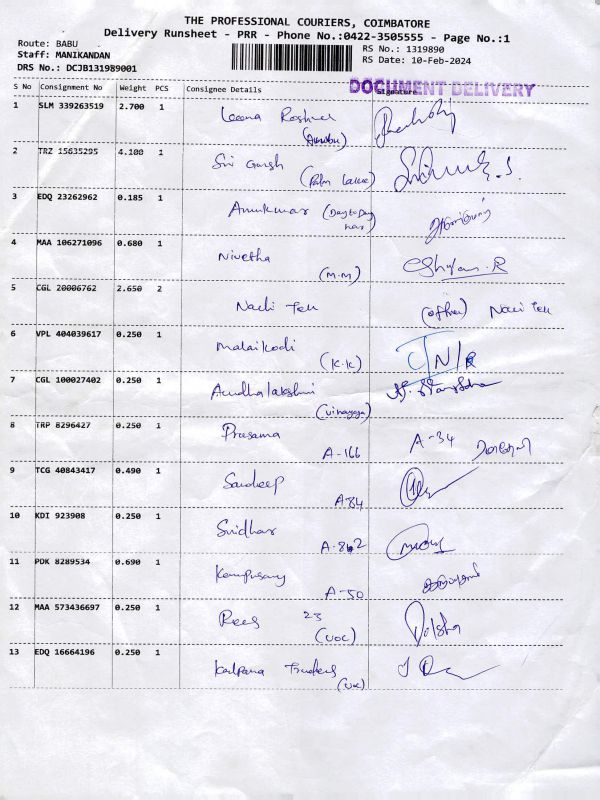 THE PROFESSIONAL COURIERS, COIMBATORE
Delivery Runsheet - PRR - Phone No.:0422-3505555 - Page No.:1
Route: BABU
Staff: MANIKANDAN
DRS No.: DCJB131989001
RS No.: 1319890
RS Date: 10-Feb-2024
DOCUMENT DELIVERY
S No Consignment No Weight PCS Consignee Details Signature
1 SLM 339263519 2.700 1 Leena Roshni
2 TRZ 15635295 4.100 1 Sri Ganesh
(Palm Lake)
3 EDQ 23262962 0.185 1 Arunkumar (Day to Day
4 MAA 106271096 0.680 1 Nivetha
(M.M)
5 CGL 20006762 2.650 2 Nachi Tek (office) Nachi Tek
6 VPL 404039617 0.250 1 Malaikodi
(K.K)
7 CGL 100027402 0.250 1 Anudhalakshmi
(Vinayaga)
8 TRP 8296427 0.250 1 Prasanna
A-166 A-34
9 TCG 40843417 0.490 1 Sandeep
A84
10 KDI 923908 0.250 1 Sridhar
A-862
11 PDK 8289534 0.690 1
A-50
12 MAA 573436697 0.250 1 Rees 23
(UOC) Dilsha
13 EDQ 16664196 0.250 1 Kalpana Traders